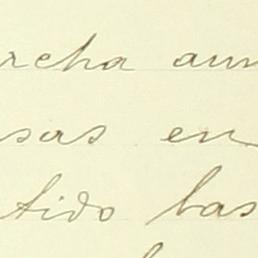 rcha aun
sas en
tido bas